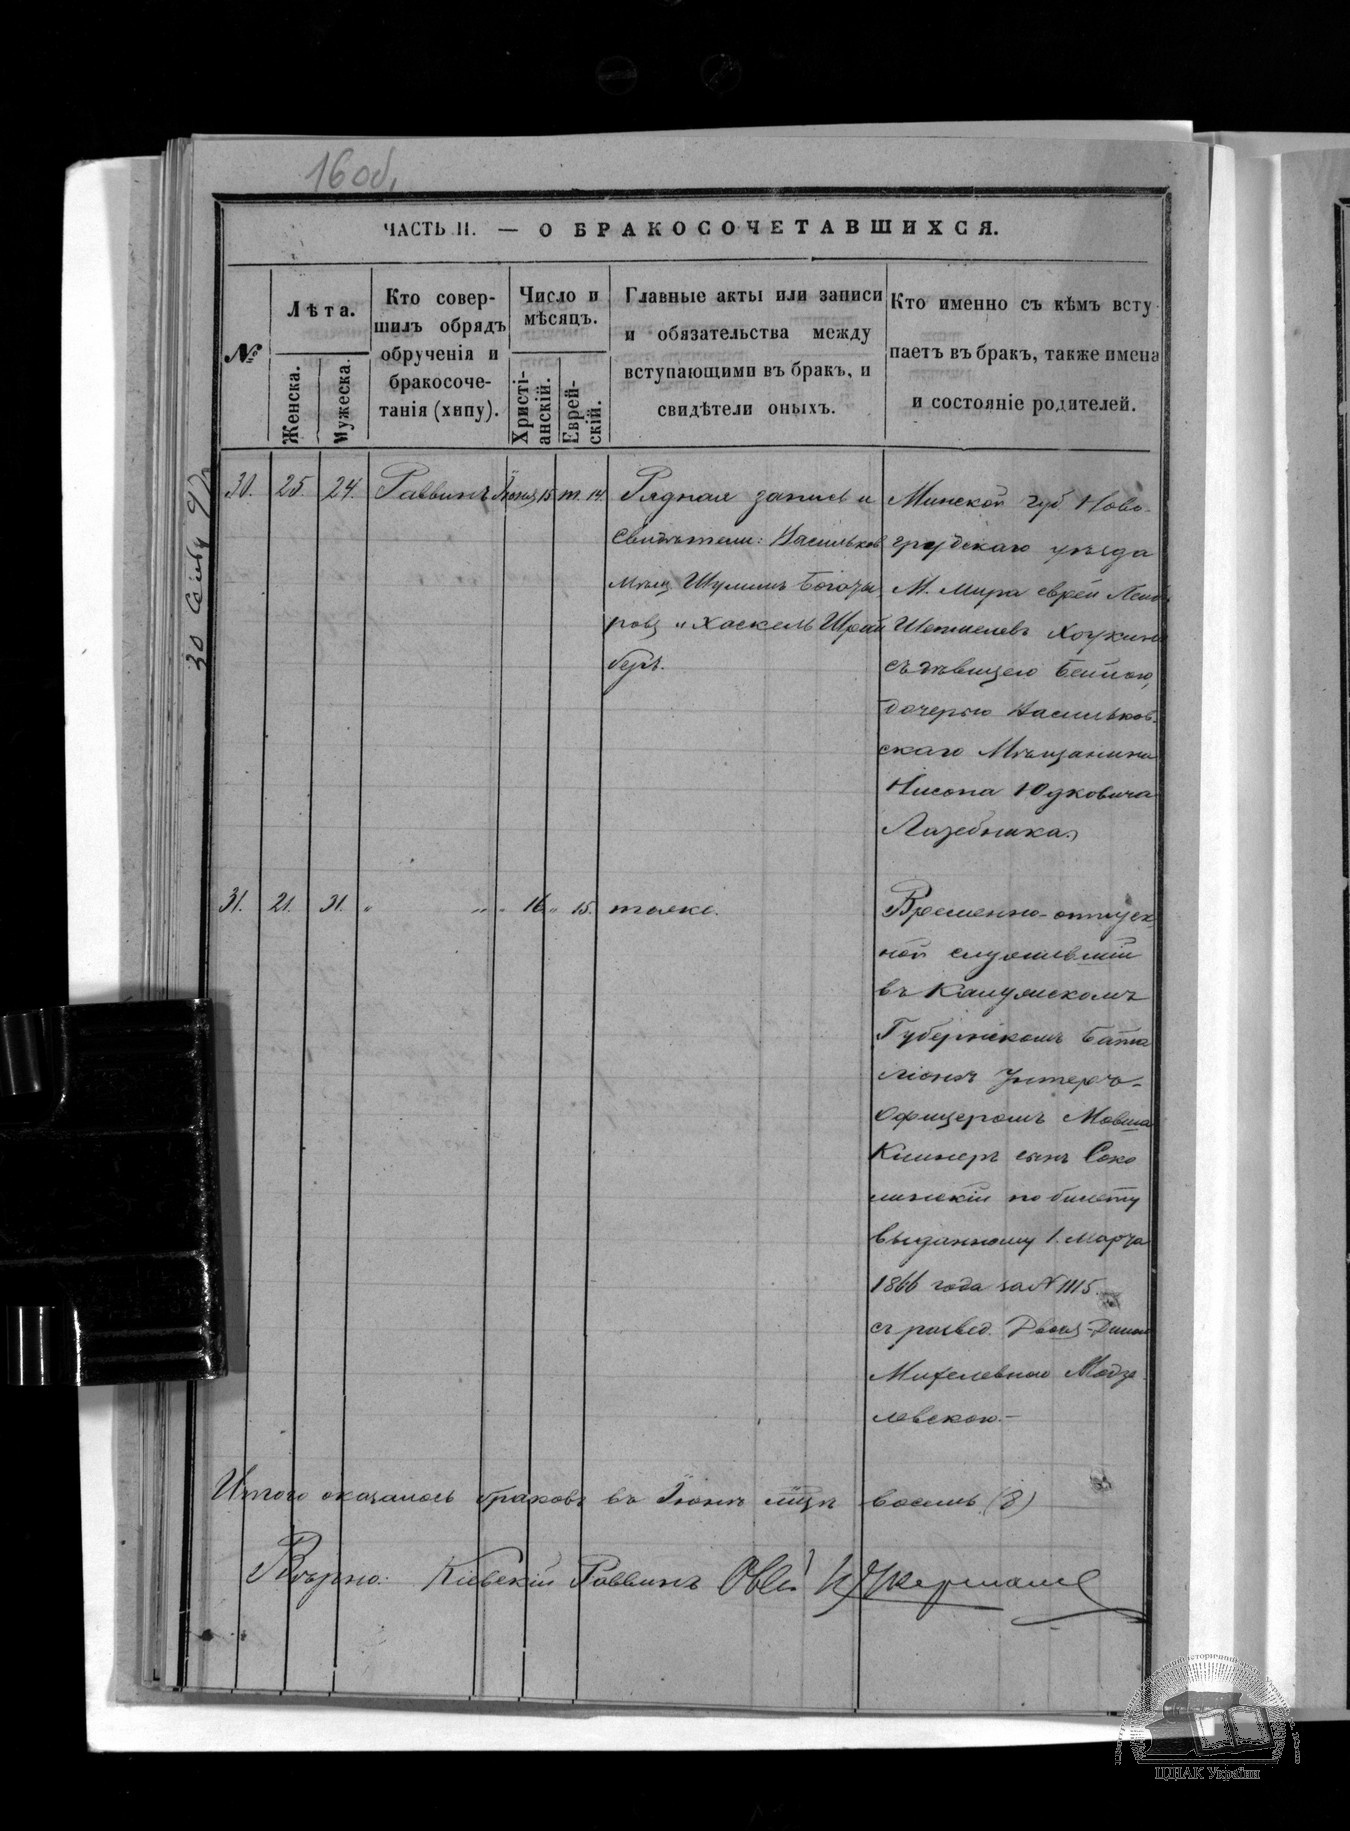 16 об.
ЧАСТЬ II. — О БРАКОСОЧЕТАВШИХСЯ.
№
Лѣта.
Женска.
Мужеска.
Кто совер-
шилъ обрядъ
обрученія и
бракосоче-
танія (хипу).
Число и
мѣсяцъ.
Христі-
анскій.
Еврей-
скій.
Главные акты или записи
и обязательства между
вступающими въ бракъ, и
свидѣтели оныхъ.
Кто именно съ кѣмъ всту
паетъ въ бракъ, также имена
и состояніе родителей.
30.
25.
24.
Раввинъ
Іюня 15
т. 14.
Рядная запись и
свидѣтели: Васильков
мѣщ Шулимъ Боготы
ровъ и Хаскель Шрай
беръ.
Минской губ. Ново-
грудскаго уѣзда
М. Мира еврей Лейб
съ дѣвицею Бейлою,
дочерью Васильков-
скаго Мѣщанина
Нисона Юдковича
Лазебника
31.
21.
31.
„
„ „
16
„ 15.
тоже.
Временно-отпуск
ной служившій
въ Калужскомъ
Губернскомъ Бата
ліонѣ Унтеръ-
Офицеромъ Мовша
сынъ Соко
линскій по билету
выданному 1. Марта
1866 года за N 1115.
съ развед. Двося-
Михелевною Модзе
левскою.—
Итого оказалось браковъ въ Іюнѣ мцѣ восемь (8)
Вѣрно: Кіевскій Раввинъ Овсей Цукерманъ
ЦДІАК України